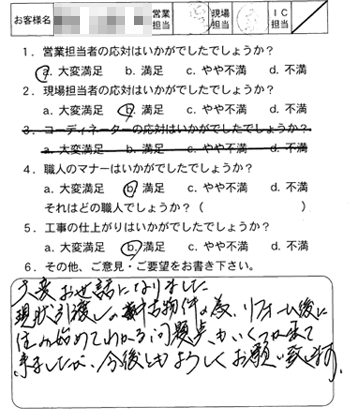 お客様名 営業担当 現場担当 ＩＣ担当
１．営業担当者の応対はいかがでしたでしょうか？
a. 大変満足 b. 満足 c. やや不満 d. 不満
２．現場担当者の応対はいかがでしたでしょうか？
a. 大変満足 b. 満足 c. やや不満 d. 不満
３．コーディネーターの応対はいかがでしたでしょうか？
a. 大変満足 b. 満足 c. やや不満 d. 不満
４．職人のマナーはいかがでしたでしょうか？
a. 大変満足 b. 満足 c. やや不満 d. 不満
それはどの職人でしょうか？（ ）
５．工事の仕上がりはいかがでしたでしょうか？
a. 大変満足 b. 満足 c. やや不満 d. 不満
６．その他、ご意見・ご要望をお書き下さい。
大変お世話になりました
現状引渡しの中古物件の為、リフォーム後に
住み始めてわかる問題点もいくつか出て
来ましたが、今後ともよろしくお願い致します。